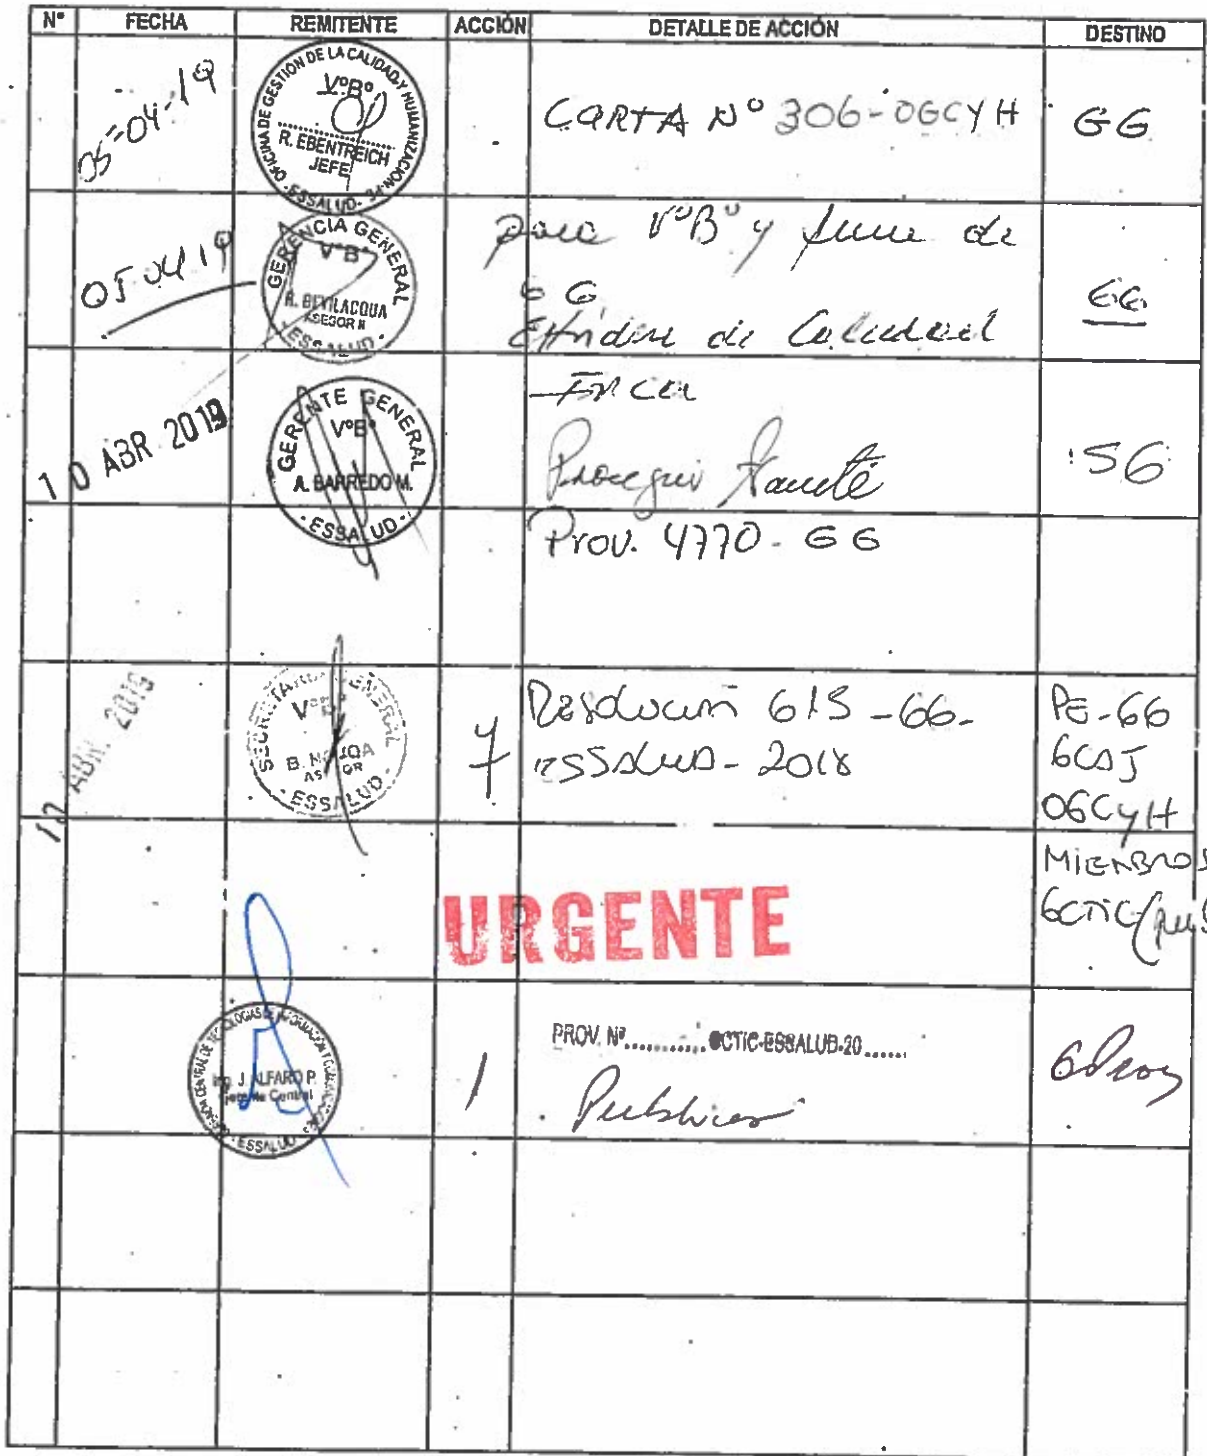 N° FECHA REMITENTE ACCIÓN DETALLE DE ACCIÓN DESTINO
05-04-19
OFICINA DE GESTIÓN DE LA CALIDAD Y HUMANIZACIÓN
V°B°
R. EBENTREICH
JEFE
ESSALUD
CARTA N° 306-OGCYH
GG
05 04 19
GERENCIA GENERAL
V°B°
R. BEVILACQUA
ASESOR II
ESSALUD
para V°B° y
de
GG
de Calidad
GG
10 ABR 2019
GERENTE GENERAL
V°B°
A. BARREDO M.
ESSALUD
Proseguir trámite
SG
Prov. 4770-GG
12 ABR. 2019
SECRETARIA GENERAL
B.
ESSALUD
Resolución 615-GG-
ESSALUD-2018
PE-GG
GCAJ
OGCyH
MIEMBROS
GCTIC
URGENTE
GERENCIA CENTRAL DE TECNOLOGIAS DE INFORMACIÓN Y COMUNICACIONES
Ing. J. ALFARO P.
Gerente Central
ESSALUD
1
PROV. N°........... GCTIC-ESSALUD-20......